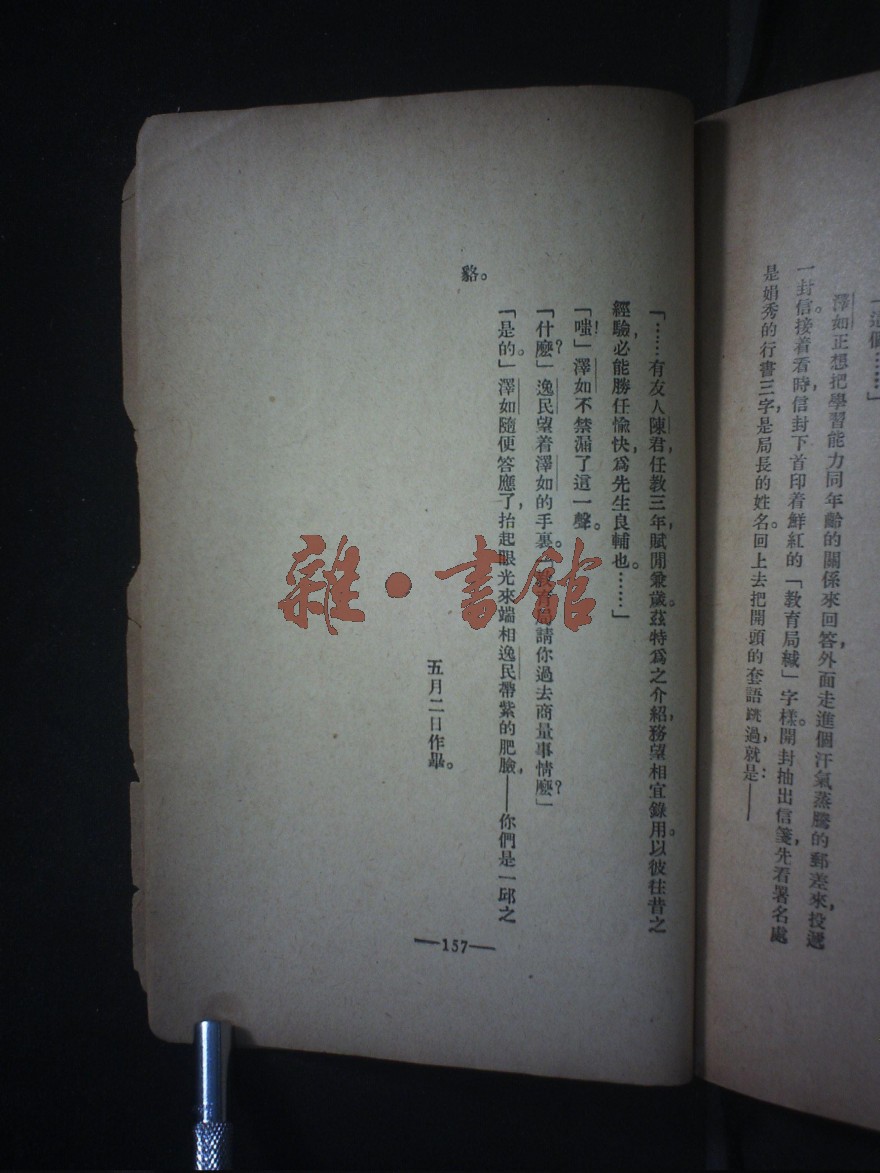 「這個……」
澤如正想把學習能力同年齡的關係來回答，外面走進個汗氣蒸騰的郵差來，投遞
一封信。接着看時，信封下首印着鮮紅的「教育局緘」字樣。開封抽出信箋，先看署名處
是娟秀的行書三字，是局長的姓名。回上去把開頭的套語跳過，就是：——
「……有友人陳君，任教三年，賦閒兼歲。茲特爲之介紹，務望相宜錄用。以彼往昔之
經驗，必能勝任愉快，爲先生良輔也。……」
「嗤！」澤如不禁漏了這一聲。
「什麼？」逸民望着澤如的手裏。「教育局請你過去商量事情麼？」
「是的。」澤如隨便答應了，抬起眼光來端相逸民帶紫的肥臉，——你們是一邱之
貉。
五月二日作畢。
—157—
雜·書館